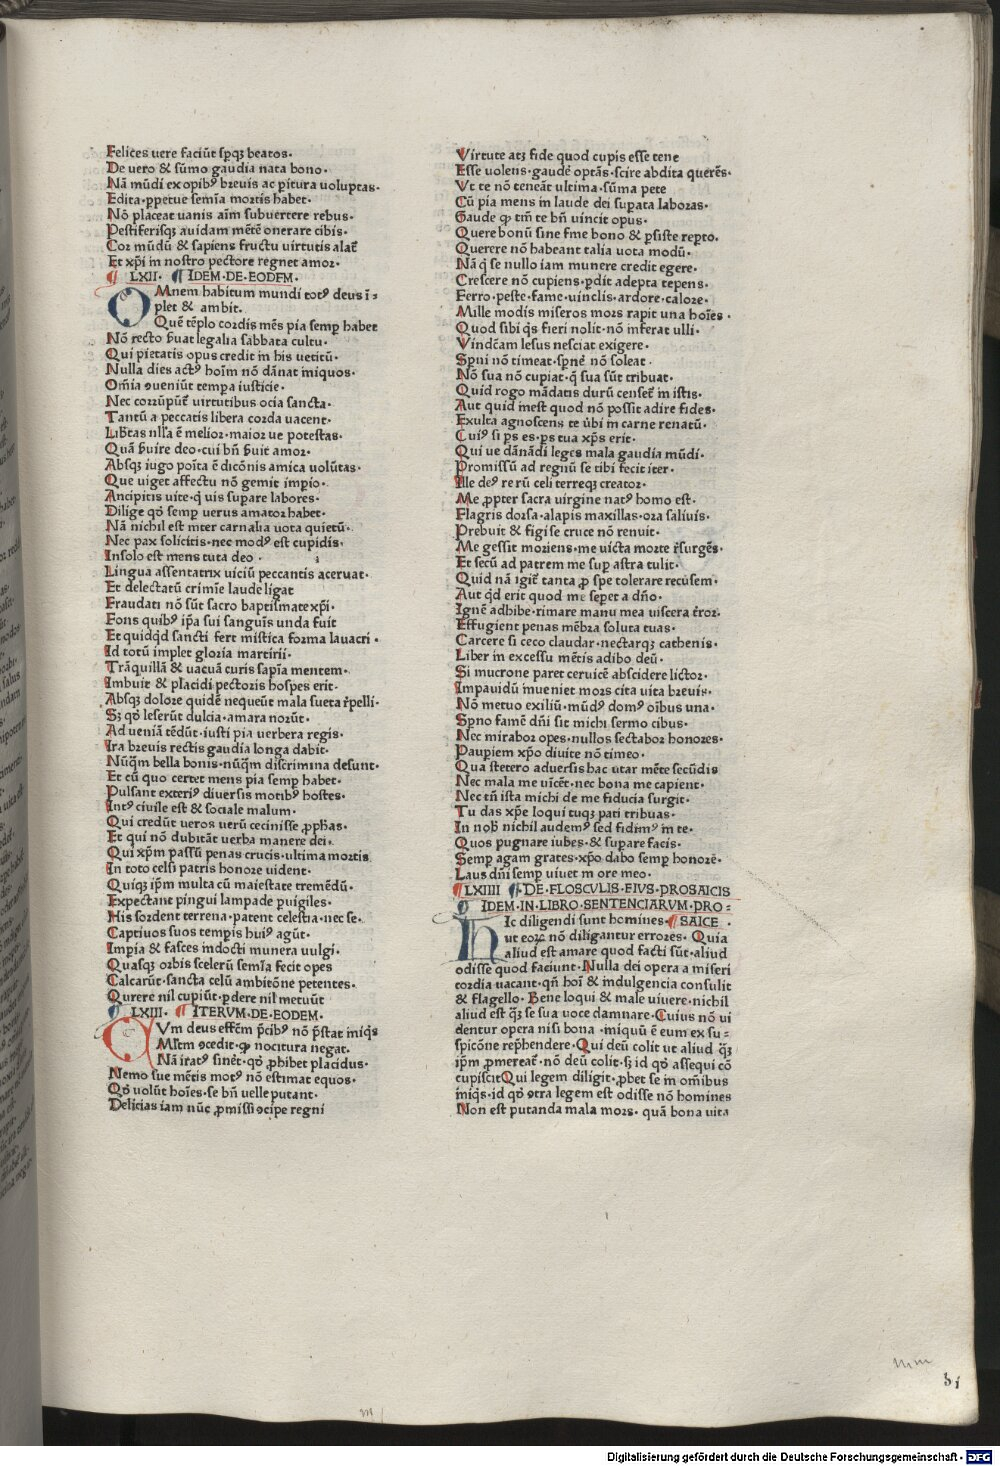 Felices uere faciūt spqꝫ beatos·
De uero & sūmo gaudia nata bono·
Nā mūdi ex opibꝰ breuis ac pitura uoluptas·
Edita·ppetue semīa mortis habet·
Nō placeat uanis aīm subuertere rebus·
Pestiferisqꝫ auidam mētē onerare cibis·
Cor mūdū & sapiens fructu uirtutis alat̄
Et xp̄i in nostro pectore regnet amor·
¶ LXII· ¶ IDEM·DE·EODEM·
OMnem habitum mundi totꝰ deus ī=
plet & ambit·
Quē tēplo cordis mēs pia semp habet
Nō recto ꝓuat legalia sabbata cultu·
Qui pietatis opus credit in his uetitū·
Nulla dies actꝰ hoīm nō dānat iniquos·
Om̄ia ꝯueniūt tempa iusticie·
Nec corrūpūt̄ uirtutibus ocia sancta·
Tantū a peccatis libera corda uacent·
Lib̄tas nll̄a ē melior·maior ue potestas·
Quā ẜuire deo·cui bn̄ ẜuit amor·
Absqꝫ iugo poīta ē dicōnis amica uolūtas·
Que uiget affectu nō gemit impio·
Ancipitis uite·q̄ uis supare labores·
Dilige qđ semp uerus amator habet·
Nā nichil est inter carnalia uota quietū·
Nec pax solicitis·nec modꝰ est cupidis·
In solo est mens tuta deo·
Lingua assentatrix uiciū peccantis aceruat·
Et delectatū crimīe laude ligat
Fraudati nō sūt sacro baptismate xp̄i·
Fons quibꝰ ip̄a sui sanguīs unda fuit
Et quidq̄d sancti fert mistica forma lauacri·
Id totū implet gloria martirii·
Trāquillā & uacuā curis sapīa mentem·
Imbuit & placidi pectoris hospes erit·
Absqꝫ dolore quidē nequeūt mala sueta r̄pelli·
Sꝫ qđ leserūt dulcia·amara norūt·
Ad ueniā tēdūt·iusti pia uerbera regis·
Ira breuis rectis gaudia longa dabit·
Nūq̄m bella bonis·nūq̄m discrimina desunt·
Et cū quo certet mens pia semp habet·
Pulsant exteriꝰ diuersis motibꝰ hostes·
Intꝰ ciuile est & sociale malum·
Qui credūt ueros uerū cecinisse ꝓph̄as·
Et qui nō dubitāt uerba manere dei·
Qui xp̄m passū penas crucis·ultima mortis
In toto celsi patris honore uident·
Quiqꝫ ip̄m multa cū maiestate tremēdū·
Expectant pingui lampade puigiles·
His sordent terrena·patent celestia·nec se·
Captiuos suos tempis huiꝰ agūt·
Impia & fasces indocti munera uulgi·
Quasqꝫ orbis scelerū semīa fecit opes
Calcarūt·sancta celū ambitōne petentes·
Qurere nil cupiūt·pdere nil metuūt
¶ LXIII· ¶ ITERVM·DE·EODEM·
CVm deus effc̄m p̄cibꝰ nō p̄stat iniq̄s
Mīs̄tm ꝯcedit·ꝙ nocitura negat·
Nā iratꝰ sinēt·qđ ꝓhibet placidus·
Nemo sue mētis motꝰ nō estimat equos·
Qđ uolūt hoīes·se bn̄ uelle putant·
Delicias iam nūc ꝓmissi ꝯcipe regni
Virtute atꝫ fide quod cupis esse tene
Esse uolens·gaudē optās·scire abdita querēs·
Vt te nō teneāt ultima·sūma pete
Cū pia mens in laude dei supata laboras·
Gaude ꝙ tm̄ te bn̄ uincit opus·
Quere bonū sine fine bono & psiste repto·
Querere nō habeant talia uota modū·
Nā q̄ se nullo iam munere credit egere·
Crescere nō cupiens·pdit adepta tepens·
Ferro·peste·fame·uinclis·ardore·calore·
Mille modis miseros mors rapit una hoīes·
Quod sibi q̄s fieri nolit·nō inferat ulli·
Vindc̄am lesus nesciat exigere·
Spni nō timeat·spnē nō soleat·
Nō sua nō cupiat·q̄ sua sūt tribuat·
Quid rogo mādatis durū censet̄ in istis·
Aut quid inest quod nō possit adire fides·
Exulta agnoscens te ūbi in carne renatū·
Cuiꝰ si ps es·ps tua xp̄s erit·
Qui ue dānādi leges mala gaudia mūdi·
Promissū ad regnū se tibi fecit iter·
Ille deꝰ re rū celi terreqꝫ creator·
Me ꝓpter sacra uirgine natꝰ homo est·
Flagris dorsa·alapis maxillas·ora saliuis·
Prebuit & figi se cruce nō renuit·
Me gessit moriens·me uicta morte r̄surgēs·
Et secū ad patrem me sup astra tulit·
Quid nā igit̄ tanta ꝓ spe tolerare recusem·
Aut q̄d erit quod me sepet a dn̄o·
Ignē adhibe·rimare manu mea uiscera t̄ror·
Effugient penas mēbra soluta tuas·
Carcere si ceco claudar·nectarqꝫ cathenis·
Liber in excessu mētis adibo deū·
Si mucrone paret ceruicē abscidere lictor·
Impauidū inueniet mors cita uita breuis·
Nō metuo exiliū·mūdꝰ domꝰ oīb̄us una·
Spno famē dn̄i sit michi sermo cibus·
Nec mirabor opes·nullos sectabor honores·
Paupiem xp̄o diuite nō timeo·
Qua stetero aduersis hac utar mēte secūdis
Nec mala me uicēt·nec bona me capient·
Nec tn̄ ista michi de me fiducia surgit·
Tu das xp̄e loqui tuqꝫ pati tribuas·
In nob̄ nichil audemꝰ sed fidimꝰ in te·
Quos pugnare iubes·& supare facis·
Semp agam grates·xp̄o dabo semp honorē·
Laus dn̄i semp uiuet in ore meo·
¶ LXIIII ¶ DE·FLOSCVLIS·EIVS·PROSAICIS
¶ IDEM·IN·LIBRO·SENTENCIARVM·PRO=
HIc diligendi sunt homines· ¶ SAICE·
ut eoꝝ nō diligantur errores· Quia
aliud est amare quod facti sūt·aliud
odisse quod faciunt· Nulla dei opera a miseri
cordia uacant·qn̄ hoī & indulgencia consulit
& flagello· Bene loqui & male uiuere·nichil
aliud est q̄ꝫ se sua uoce damnare· Cuius nō ui
dentur opera nisi bona·iniquū ē eum ex su=
spicōne rep̄hendere· Qui deū colit ut aliud q̄ꝫ
ip̄m ꝓmereat̄·nō deū colit·sꝫ id qđ assequi cō
cupiscit Qui legem diligit·ꝓbet se in om̄ibus
iniq̄s·id qđ ꝯtra legem est odisse nō homines
Non est putanda mala mors·quā bona uita
mm
31
m
Digitalisierung gefördert durch die Deutsche Forschungsgemeinschaft - DFG